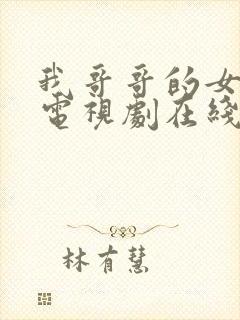 我哥哥的女
電視劇在綫
林有慧